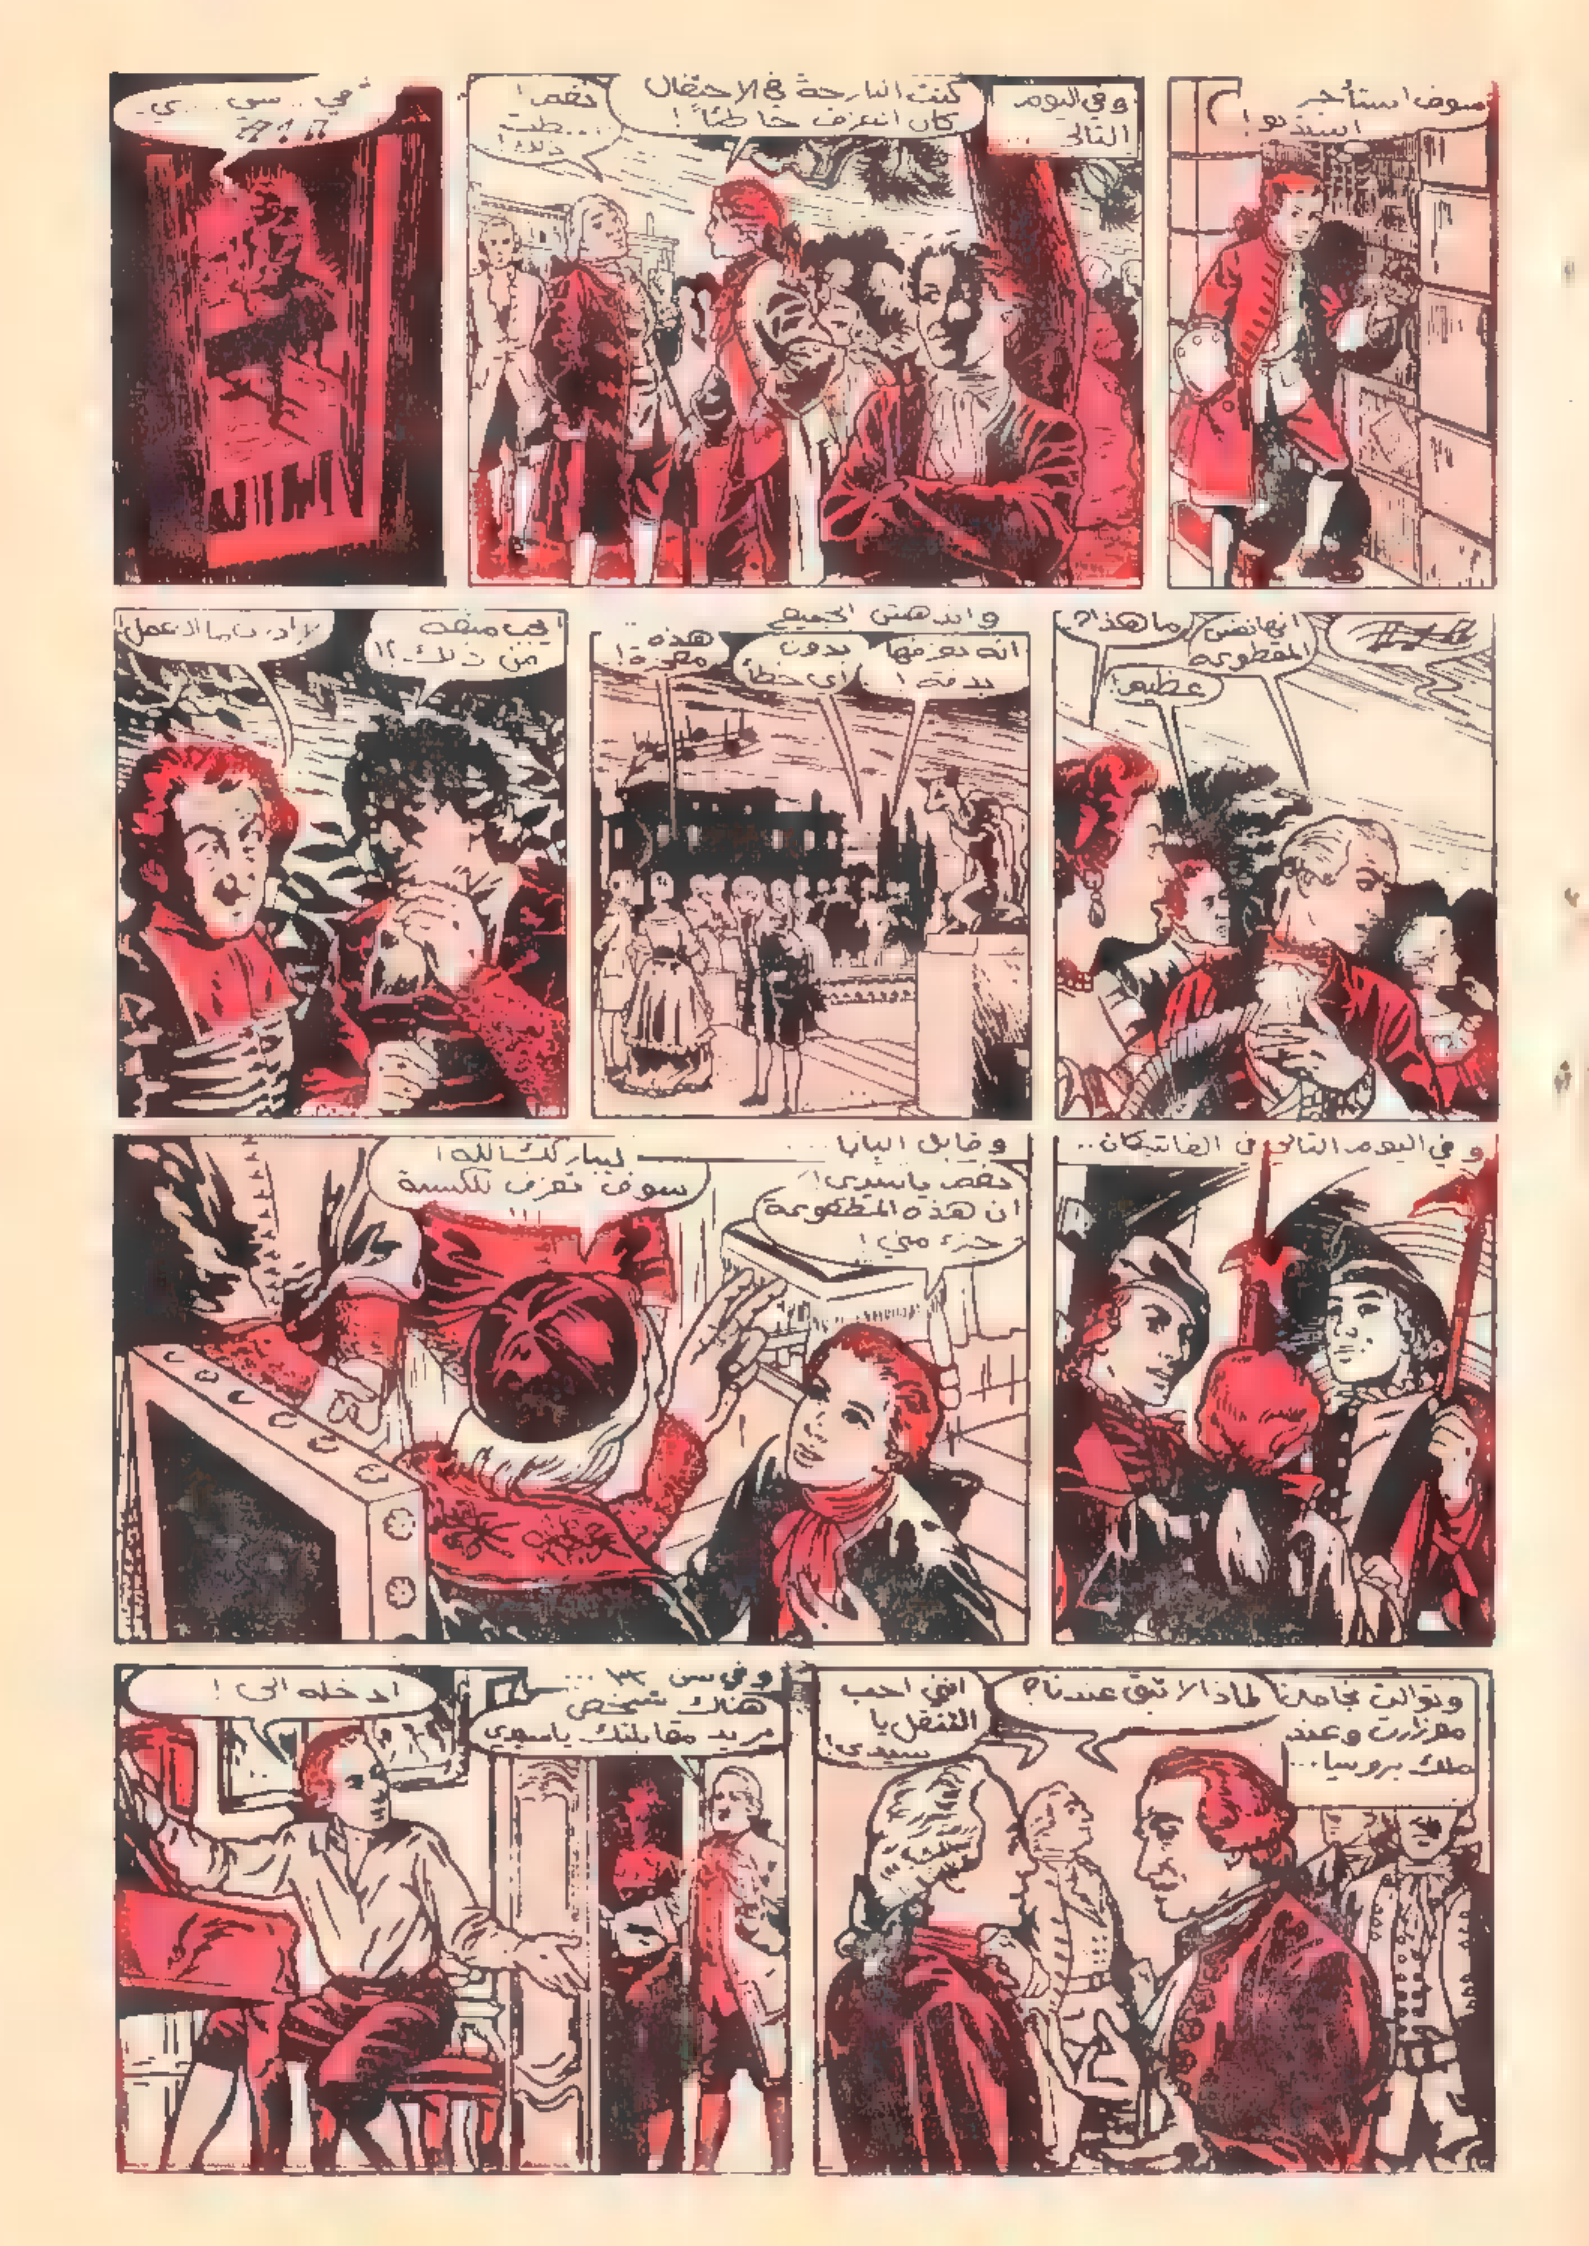 سوف استأجر
استديو!
وفي اليوم
التالي ...
كنت البارحة في الاحتفال
كان العزف خاطئاً!
نعم!
ذلك!
في .. سي .. ي
ما هذا؟
انها نفس
المقطوعة
عظيم!
واندهش الجميع
انه يعزفها
بدقة!
بدون
اي خطأ
هذه
معجزة!
من ذلك؟!
وفي اليوم التالي في الفاتيكان ..
وقابل البابا ....
نعم ياسيدي!
ان هذه المقطوعة
جزء مني!
ليباركك الله!
سوف تعزف للكنيسة
وتوالت نجاحات
موزارت وعند
ملك بروسيا...
لماذا لا تبقى عندنا؟
انني احب
التنقل يا
سيدي!
وفي سن ٣٣ ...
هناك شخص
يريد مقابلتك ياسيدي
ادخله الي!